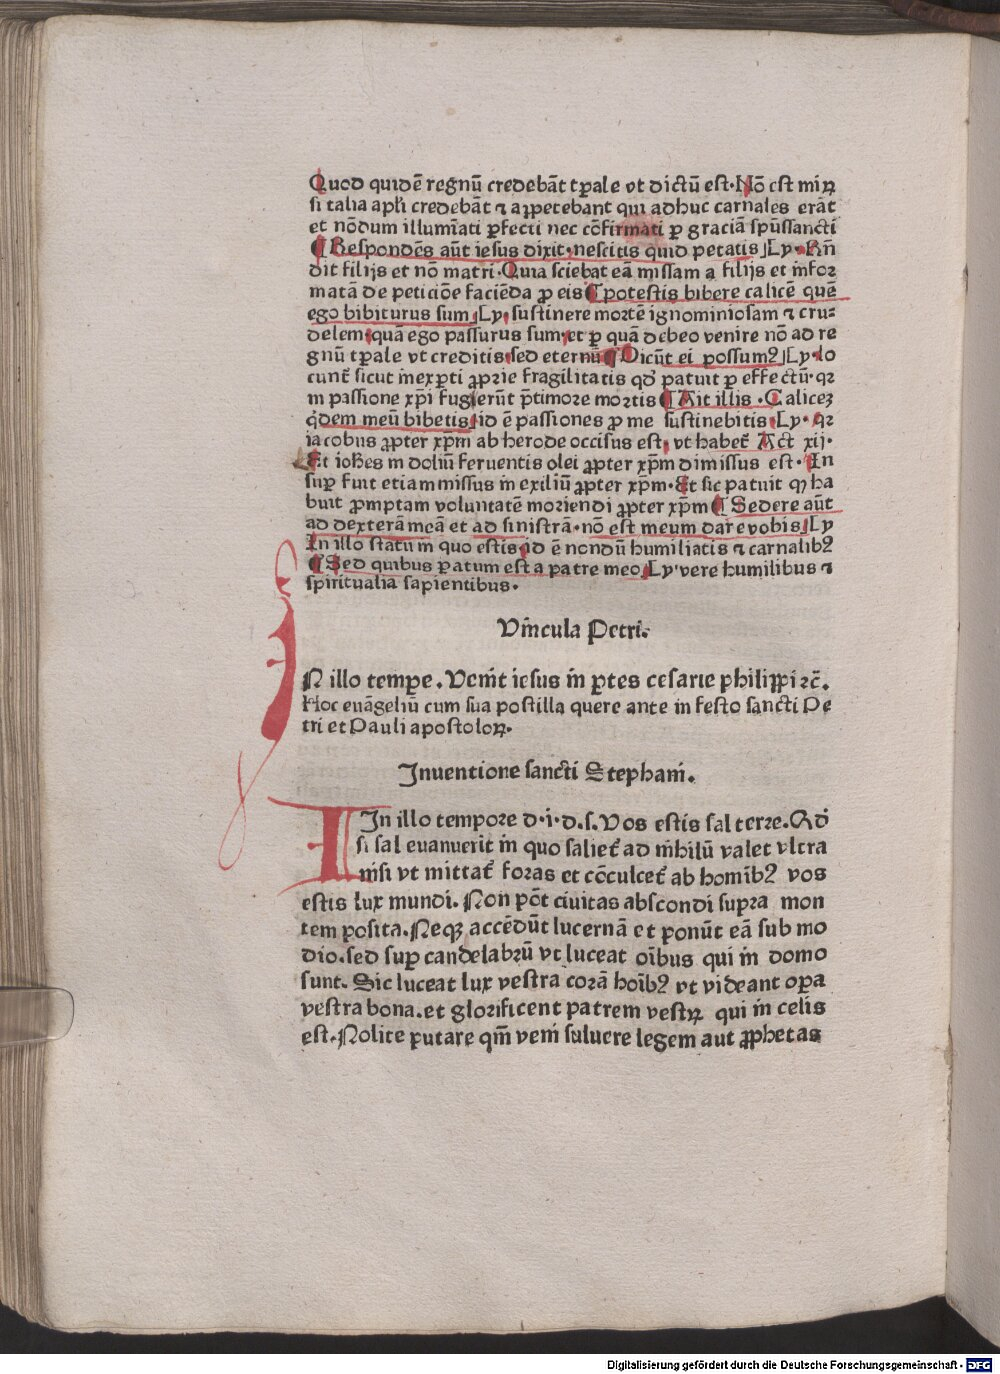 Quod quidē regnū credebāt tꝑale vt dictū est. Nō est miꝝ
si talia apl̓i credebāt ⁊ aꝑpetebant qui adhuc carnales erāt
et nōdum illumīati ꝑfecti nec cōfirmati ꝑ graciā spūssancti
¶ Respondēs aūt iesus dixit. nescitis quid petatis] Ly. Rn̄
dit filijs et nō matri. Quia sciebat eā missam a filijs et īfor
matā de peticiōe faciēda ꝓ eis ¶ potestis bibere calicē quē
ego bibiturus sum] Ly. sustinere mortē ignominiosam ⁊ cru⸗
delem. quā ego passurus sum. et ꝑ quā debeo venire nō ad re
gnū tꝑale vt creditis. sed eternū ¶ Dicūt ei possumꝰ] Ly. lo
cunt̄ sicut inexꝑti ꝓprie fragilitatis qd̓ patuit ꝑ effectū. qꝛ
in passione xp̄i fugierūt p̄timore mortis ¶ Ait illis. Caliceꝫ
q̇dem meū bibetis. id ē passiones ꝓ me sustinebitis. Ly. qꝛ
iacobus ꝓpter xp̄m ab herode occisus est. vt habet̄ Act xij.
Et ioh̄es in doliū feruentis olei ꝓpter xp̄m dimissus est. In
suꝑ fuit etiam missus in exiliū ꝓpter xp̄m. Et sic patuit ꝙ ha
buit ꝓmptam voluntatē moriendi ꝓpter xp̄m ¶ Sedere aūt
ad dexterā meā et ad sinistrā. nō est meum dare vobis] Ly
In illo statu in quo estis. id ē nondū humiliatis ⁊ carnalibꝰ
¶ Sed quibus ꝑatum est a patre meo] Ly. vere humilibus ⁊
spiritualia sapientibus.
Vīncula Petri.
IN illo tempe. Venīt iesus in ꝑtes cesarie philippi ⁊c̄.
Hoc euāgeliū cum sua postilla quere ante in festo sancti Pe
tri et Pauli apostoloꝝ.
Inuentione sancti Stephani.
In illo tempore d. i. d. s. Vos estis sal terre. Qd̓
si sal euanuerit in quo saliet̄ ad nihilū valet vltra
nisi vt mittat̄ foras et cōculcet̄ ab homībꝰ vos
estis lux mundi. Non pōt ciuitas abscondi supra mon
tem posita. Neqꝫ accēdūt lucernā et ponūt eā sub mo
dio. sed suꝑ candelabrū vt luceat oībus qui in domo
sunt. Sic luceat lux vestra corā hoībꝰ vt videant oꝑa
vestra bona. et glorificent patrem vestꝝ qui in celis
est. Nolite putare qm̄ veni soluere legem aut ꝓphetas
Digitalisierung gefördert durch die Deutsche Forschungsgemeinschaft - DFG